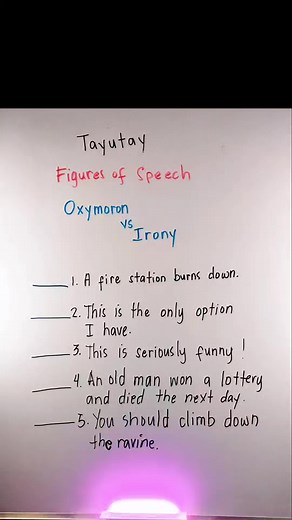 Tayutay
Figures of Speech
Oxymoron
vs
Irony
____ 1. A fire station burns down.
____ 2. This is the only option
I have.
____ 3. This is seriously funny!
____ 4. An old man won a lottery
and died the next day.
____ 5. You should climb down
the ravine.